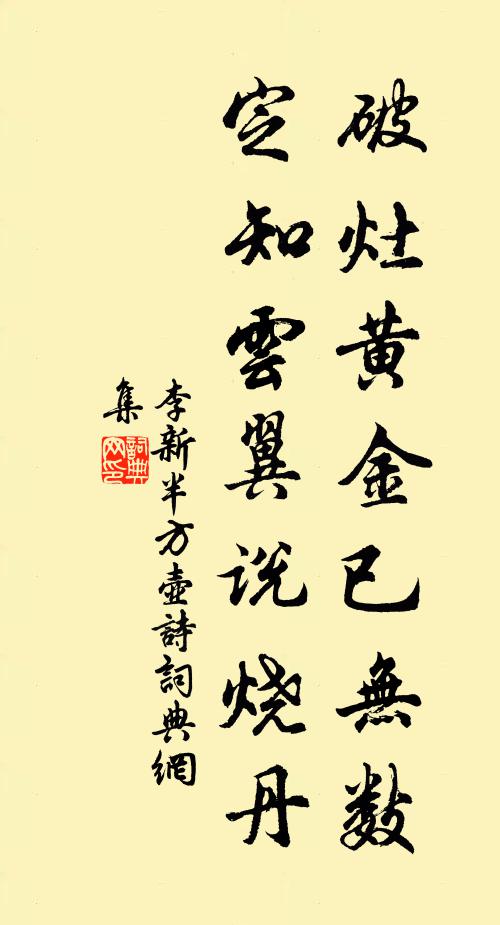 破灶黄金已無数
定知雲翼说烧丹
李新半方壺詩詞典網
集
詞典網印